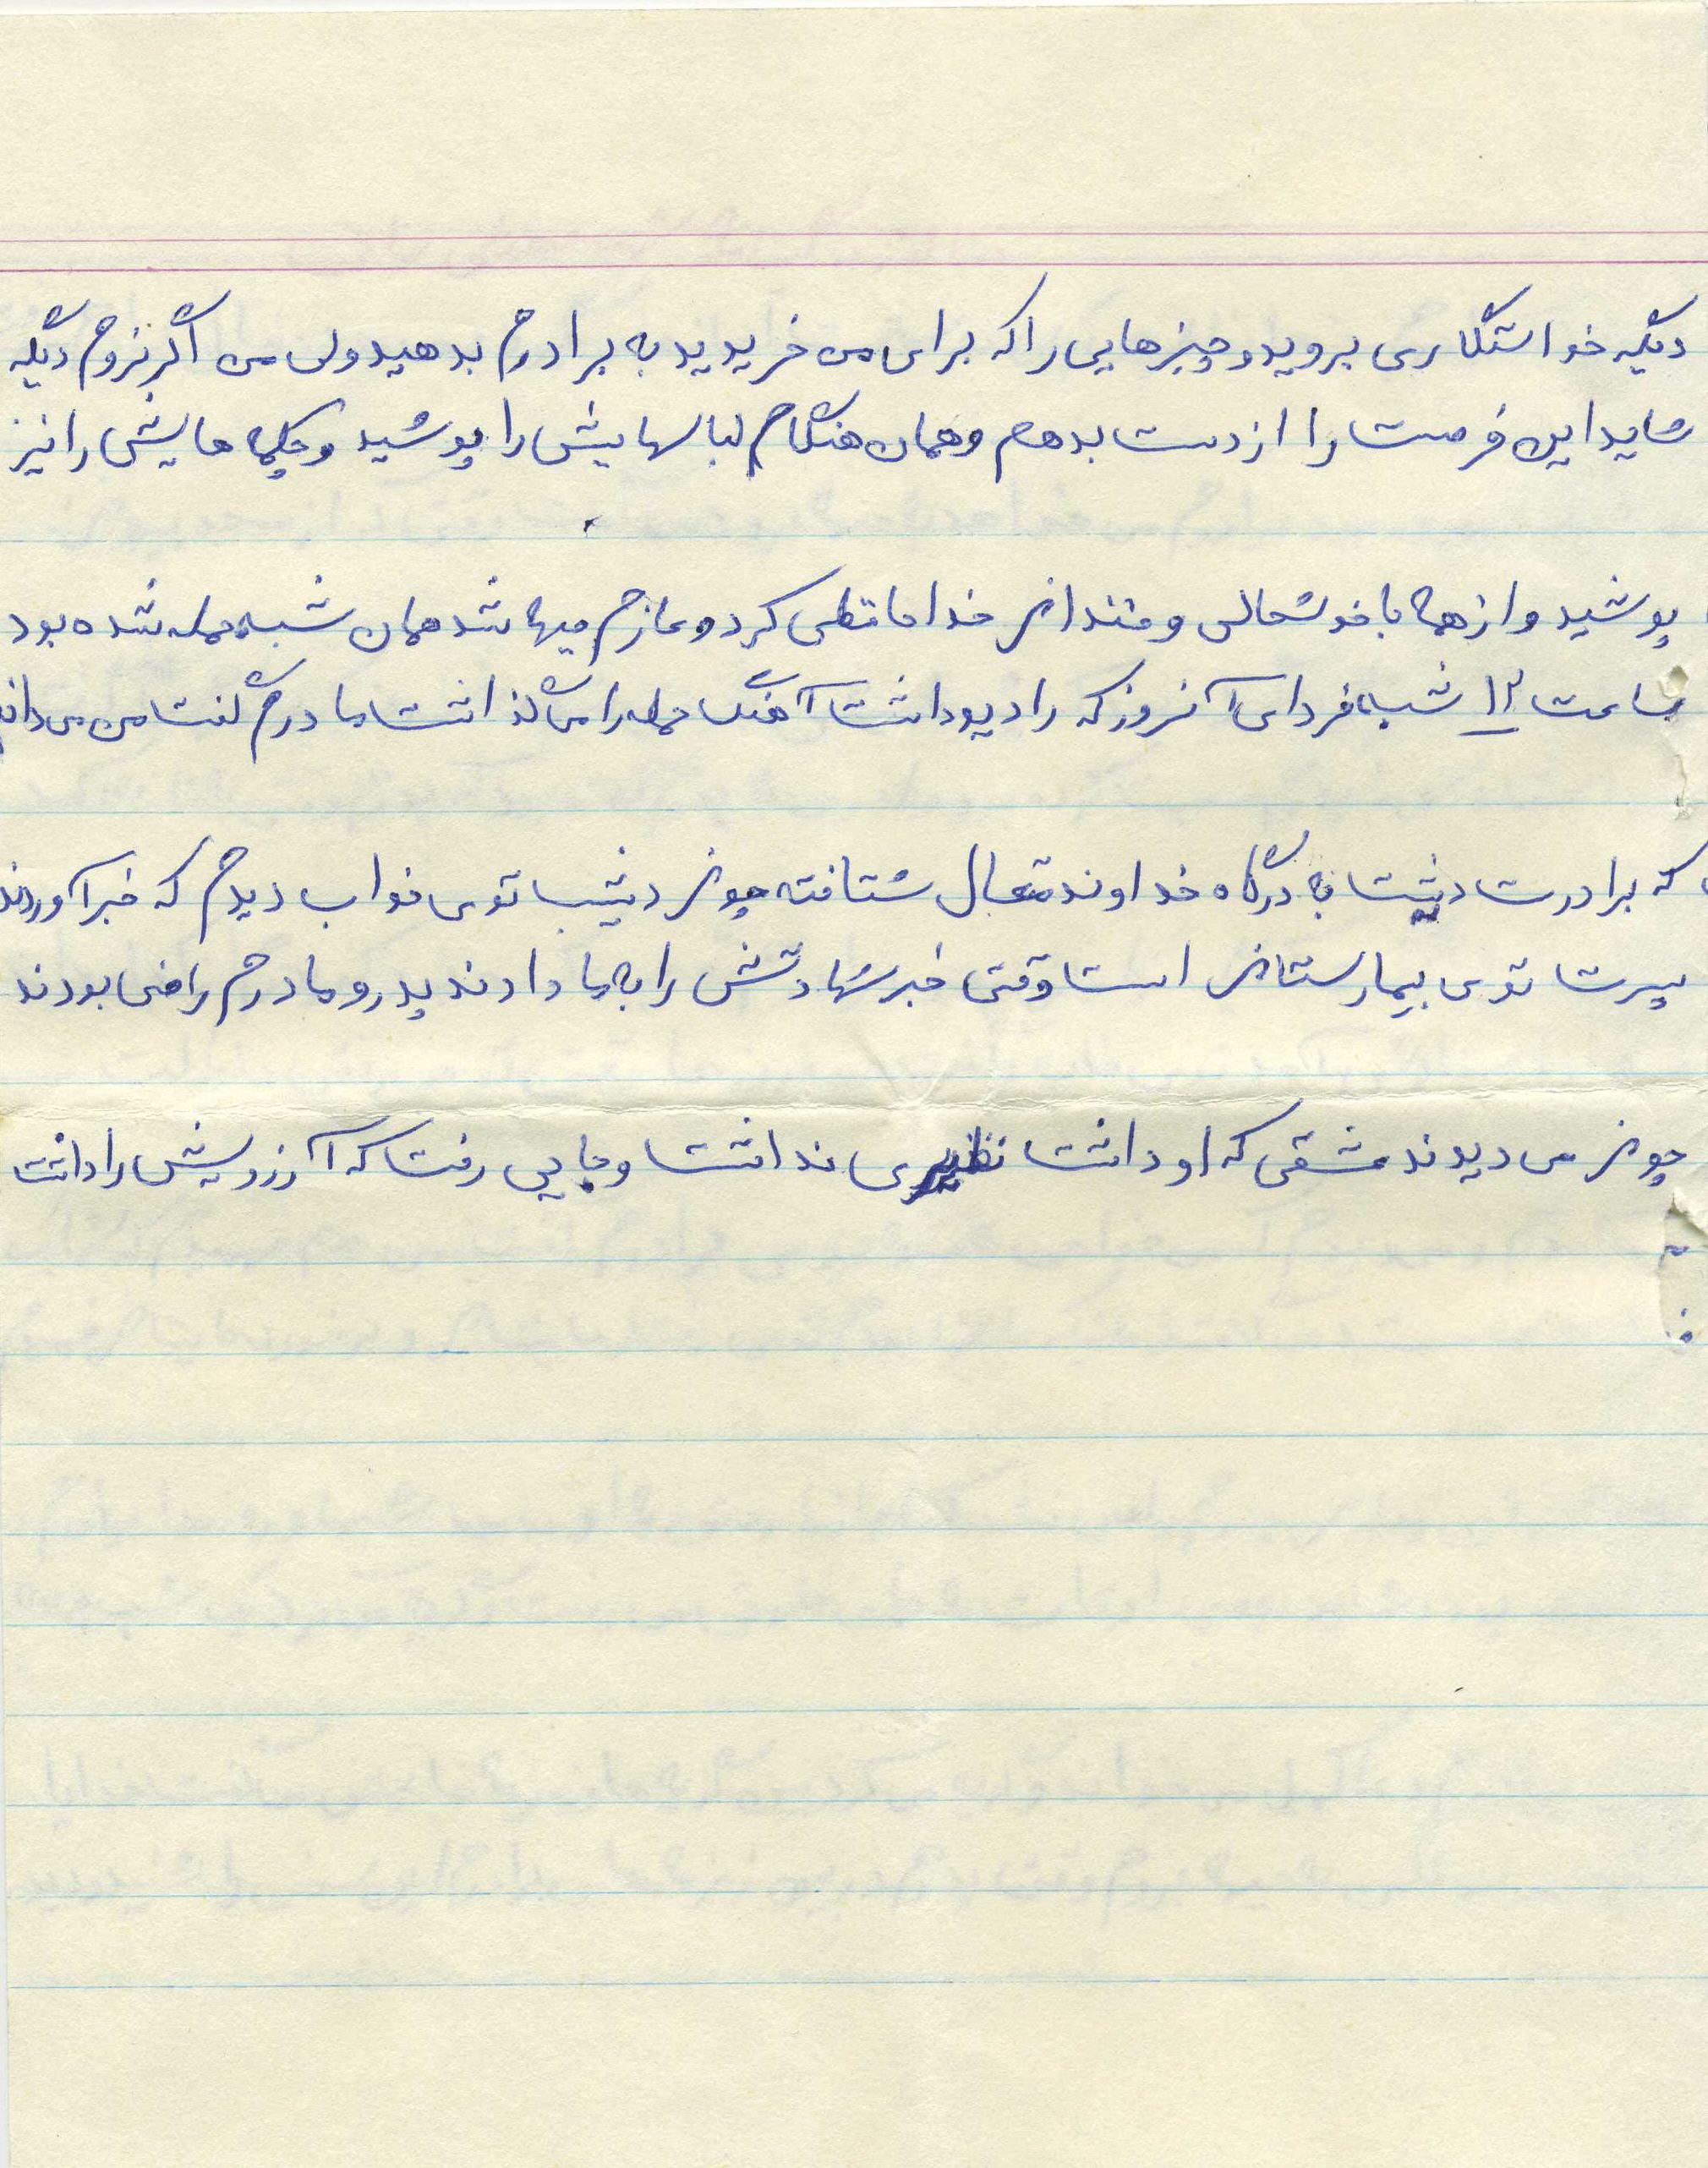 دیگه خواستگاری بروید و چیزهایی را که برای من خریدید به برادرم بدهید ولی من اگر نروم دیگه
شاید این فرصت را از دست بدهم و همان هنگام لباسهایش را پوشید و چکمه هایش را نیز
پوشید و از همه با خوشحالی و خندان خداحافظی کرد و عازم جبهه شد همان شب حمله شده بود
ساعت ۱۲ شب فردای آنروز که رادیو داشت آهنگ حمله را می گذاشت مادرم گفت من می دانم
که برادرت دیشب به درگاه خداوند متعال شتافته چون دیشب توی خواب دیدم که خبر آوردند
پسرت توی بیمارستان است وقتی خبر شهادتش را به ما دادند پدر و مادرم راضی بودند
چون می دیدند عشقی که او داشت نظیری نداشت و جایی رفت که آرزویش را داشت